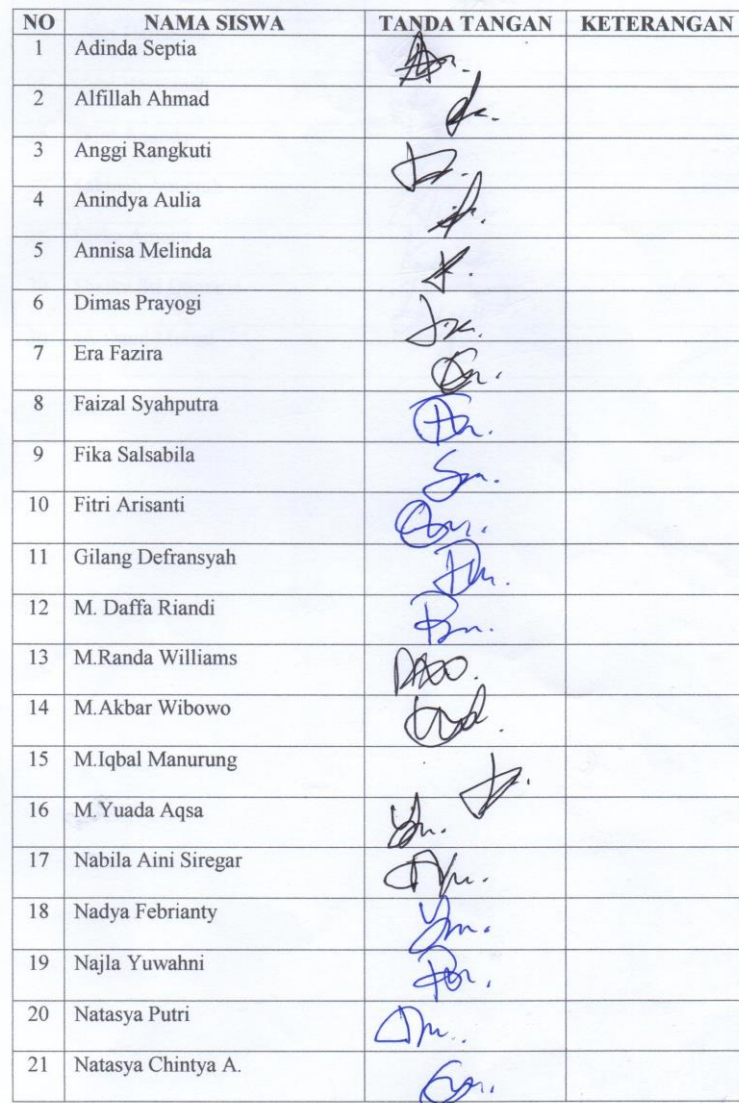 NO NAMA SISWA TANDA TANGAN KETERANGAN
1 Adinda Septia
2 Alfillah Ahmad
3 Anggi Rangkuti
4 Anindya Aulia
5 Annisa Melinda
6 Dimas Prayogi
7 Era Fazira
8 Faizal Syahputra
9 Fika Salsabila
10 Fitri Arisanti
11 Gilang Defransyah
12 M. Daffa Riandi
13 M.Randa Williams
14 M.Akbar Wibowo
15 M.Iqbal Manurung
16 M.Yuada Aqsa
17 Nabila Aini Siregar
18 Nadya Febrianty
19 Najla Yuwahni
20 Natasya Putri
21 Natasya Chintya A.